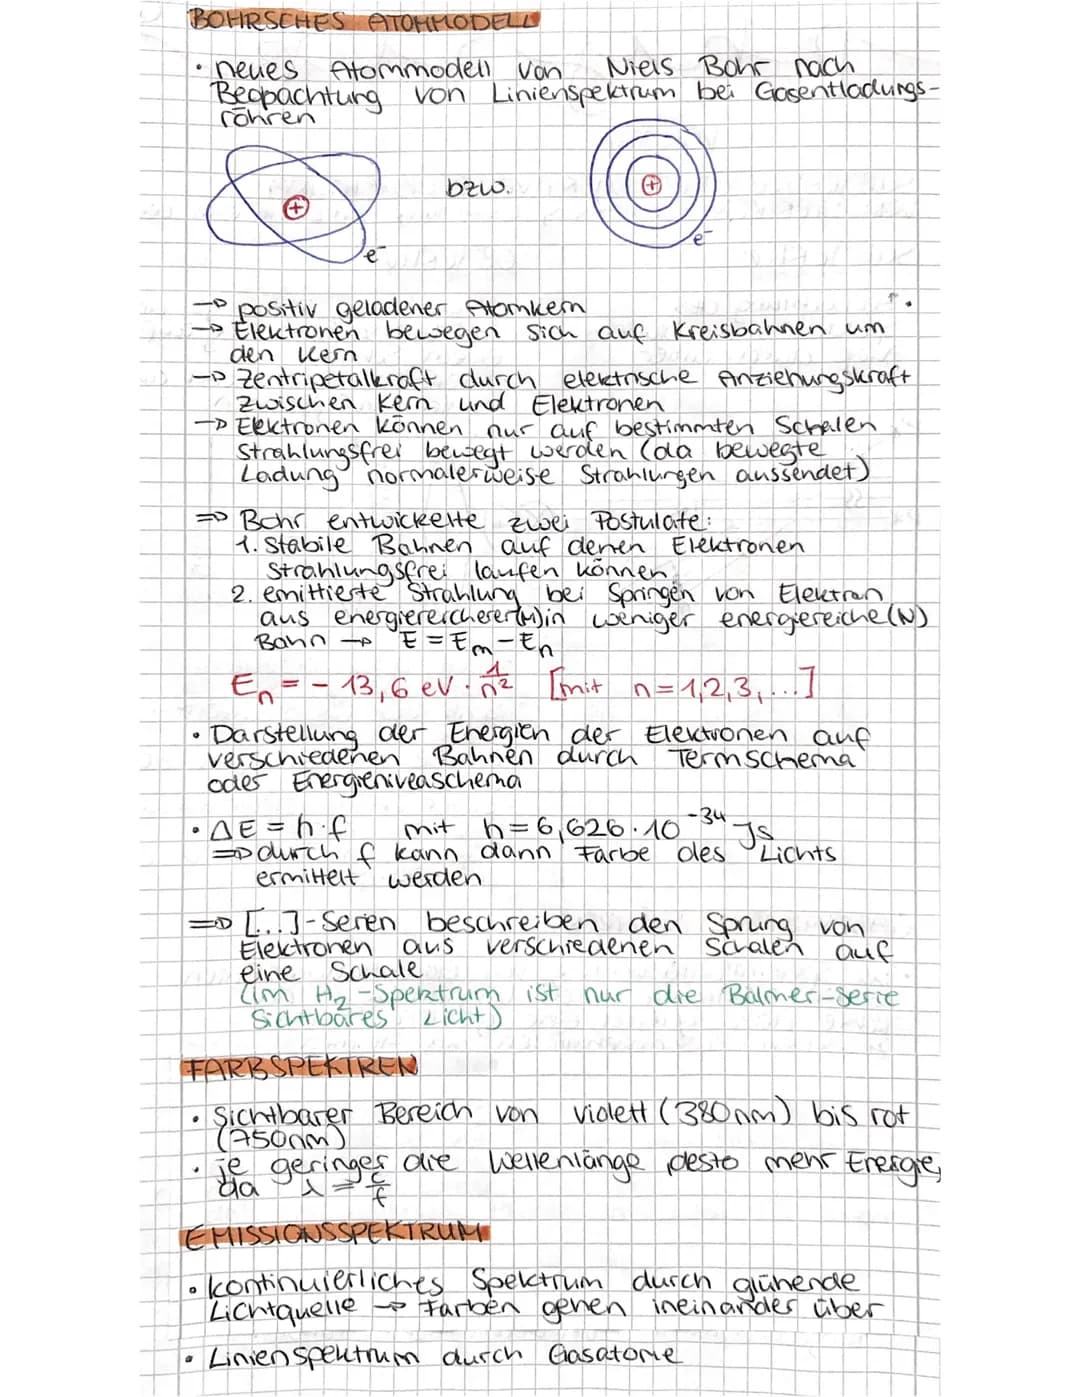 BOHRSCHES ATOMMODELL
• neues Atommodell von Niels Bohr nach
Beobachtung von Linienspektrum bei Gasentladungs-
röhren
+
bzw.
+
e⁻
e⁻
→ positiv geladener Atomkern
→ Elektronen bewegen sich auf Kreisbahnen um
den Kern
→ Zentripetalkraft durch elektrische Anziehungskraft
zwischen Kern und Elektronen
→ Elektronen können nur auf bestimmten Schalen
strahlungsfrei bewegt werden (da bewegte
Ladung normalerweise Strahlungen aussendet)
⇒ Bohr entwickelte zwei Postulate:
1. Stabile Bahnen auf denen Elektronen
strahlungsfrei laufen können
2. emittierte Strahlung bei Springen von Elektron
aus energiereicherer(M) in weniger energiereiche(N)
Bahn → E = Em - En
En = - 13,6 eV · 1/n² [mit n=1,2,3,...]
• Darstellung der Energien der Elektronen auf
verschiedenen Bahnen durch Termschema
oder Energieniveaschema
• ΔE = h·f mit h = 6,626·10⁻³⁴ Js
⇒ durch f kann dann Farbe des Lichts
ermittelt werden
⇒ [...]-Seren beschreiben den Sprung von
Elektronen aus verschiedenen Schalen auf
eine Schale
(im H₂-Spektrum ist nur die Balmer-Serie
sichtbares Licht)
FARBSPEKTREN
• Sichtbarer Bereich von violett (380nm) bis rot
(750nm)
• je geringer die Wellenlänge desto mehr Energie,
da λ = c/f
EMISSIONSSPEKTRUM
• kontinuierliches Spektrum durch glühende
Lichtquelle → Farben gehen ineinander über
• Linienspektrum durch Gasatome